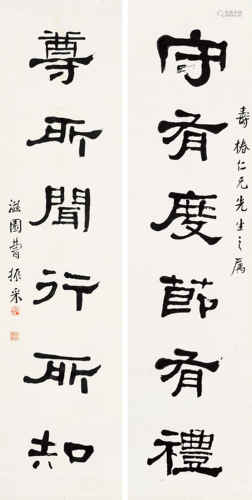 壽椿仁兄先生之屬
守有度節有禮
尊所聞行所知
滋園曹振采